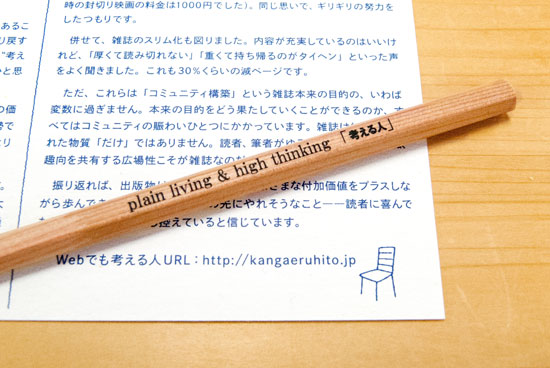 あるこ
り戻す
“考え
ひと思
の価
勢で
大
時の封切り映画の料金は1000円でした）。同じ思いで、ギリギリの努力を
したつもりです。
併せて、雑誌のスリム化も図りました。内容が充実しているのはいいけ
れど、「厚くて読み切れない」「重くて持ち帰るのがタイヘン」といった声
をよく聞きました。これも30％くらいの減ページです。
ただ、これらは「コミュニティ構築」という雑誌本来の目的の、いわば
変数に過ぎません。本来の目的をどう果たしていくことができるのか、す
べてはコミュニティの賑わいひとつにかかっています。雑誌は
れた物質「だけ」ではありません。読者、筆者がゆ
趣向を共有する広場性こそが雑誌なの
振り返れば、出版物 さまな付加価値をプラスしな
がら歩んで の先にやれそうなこと――読者に喜んで
控えていると信じています。
Webでも考える人URL：http://kangaeruhito.jp
plain living & high thinking 「考える人」